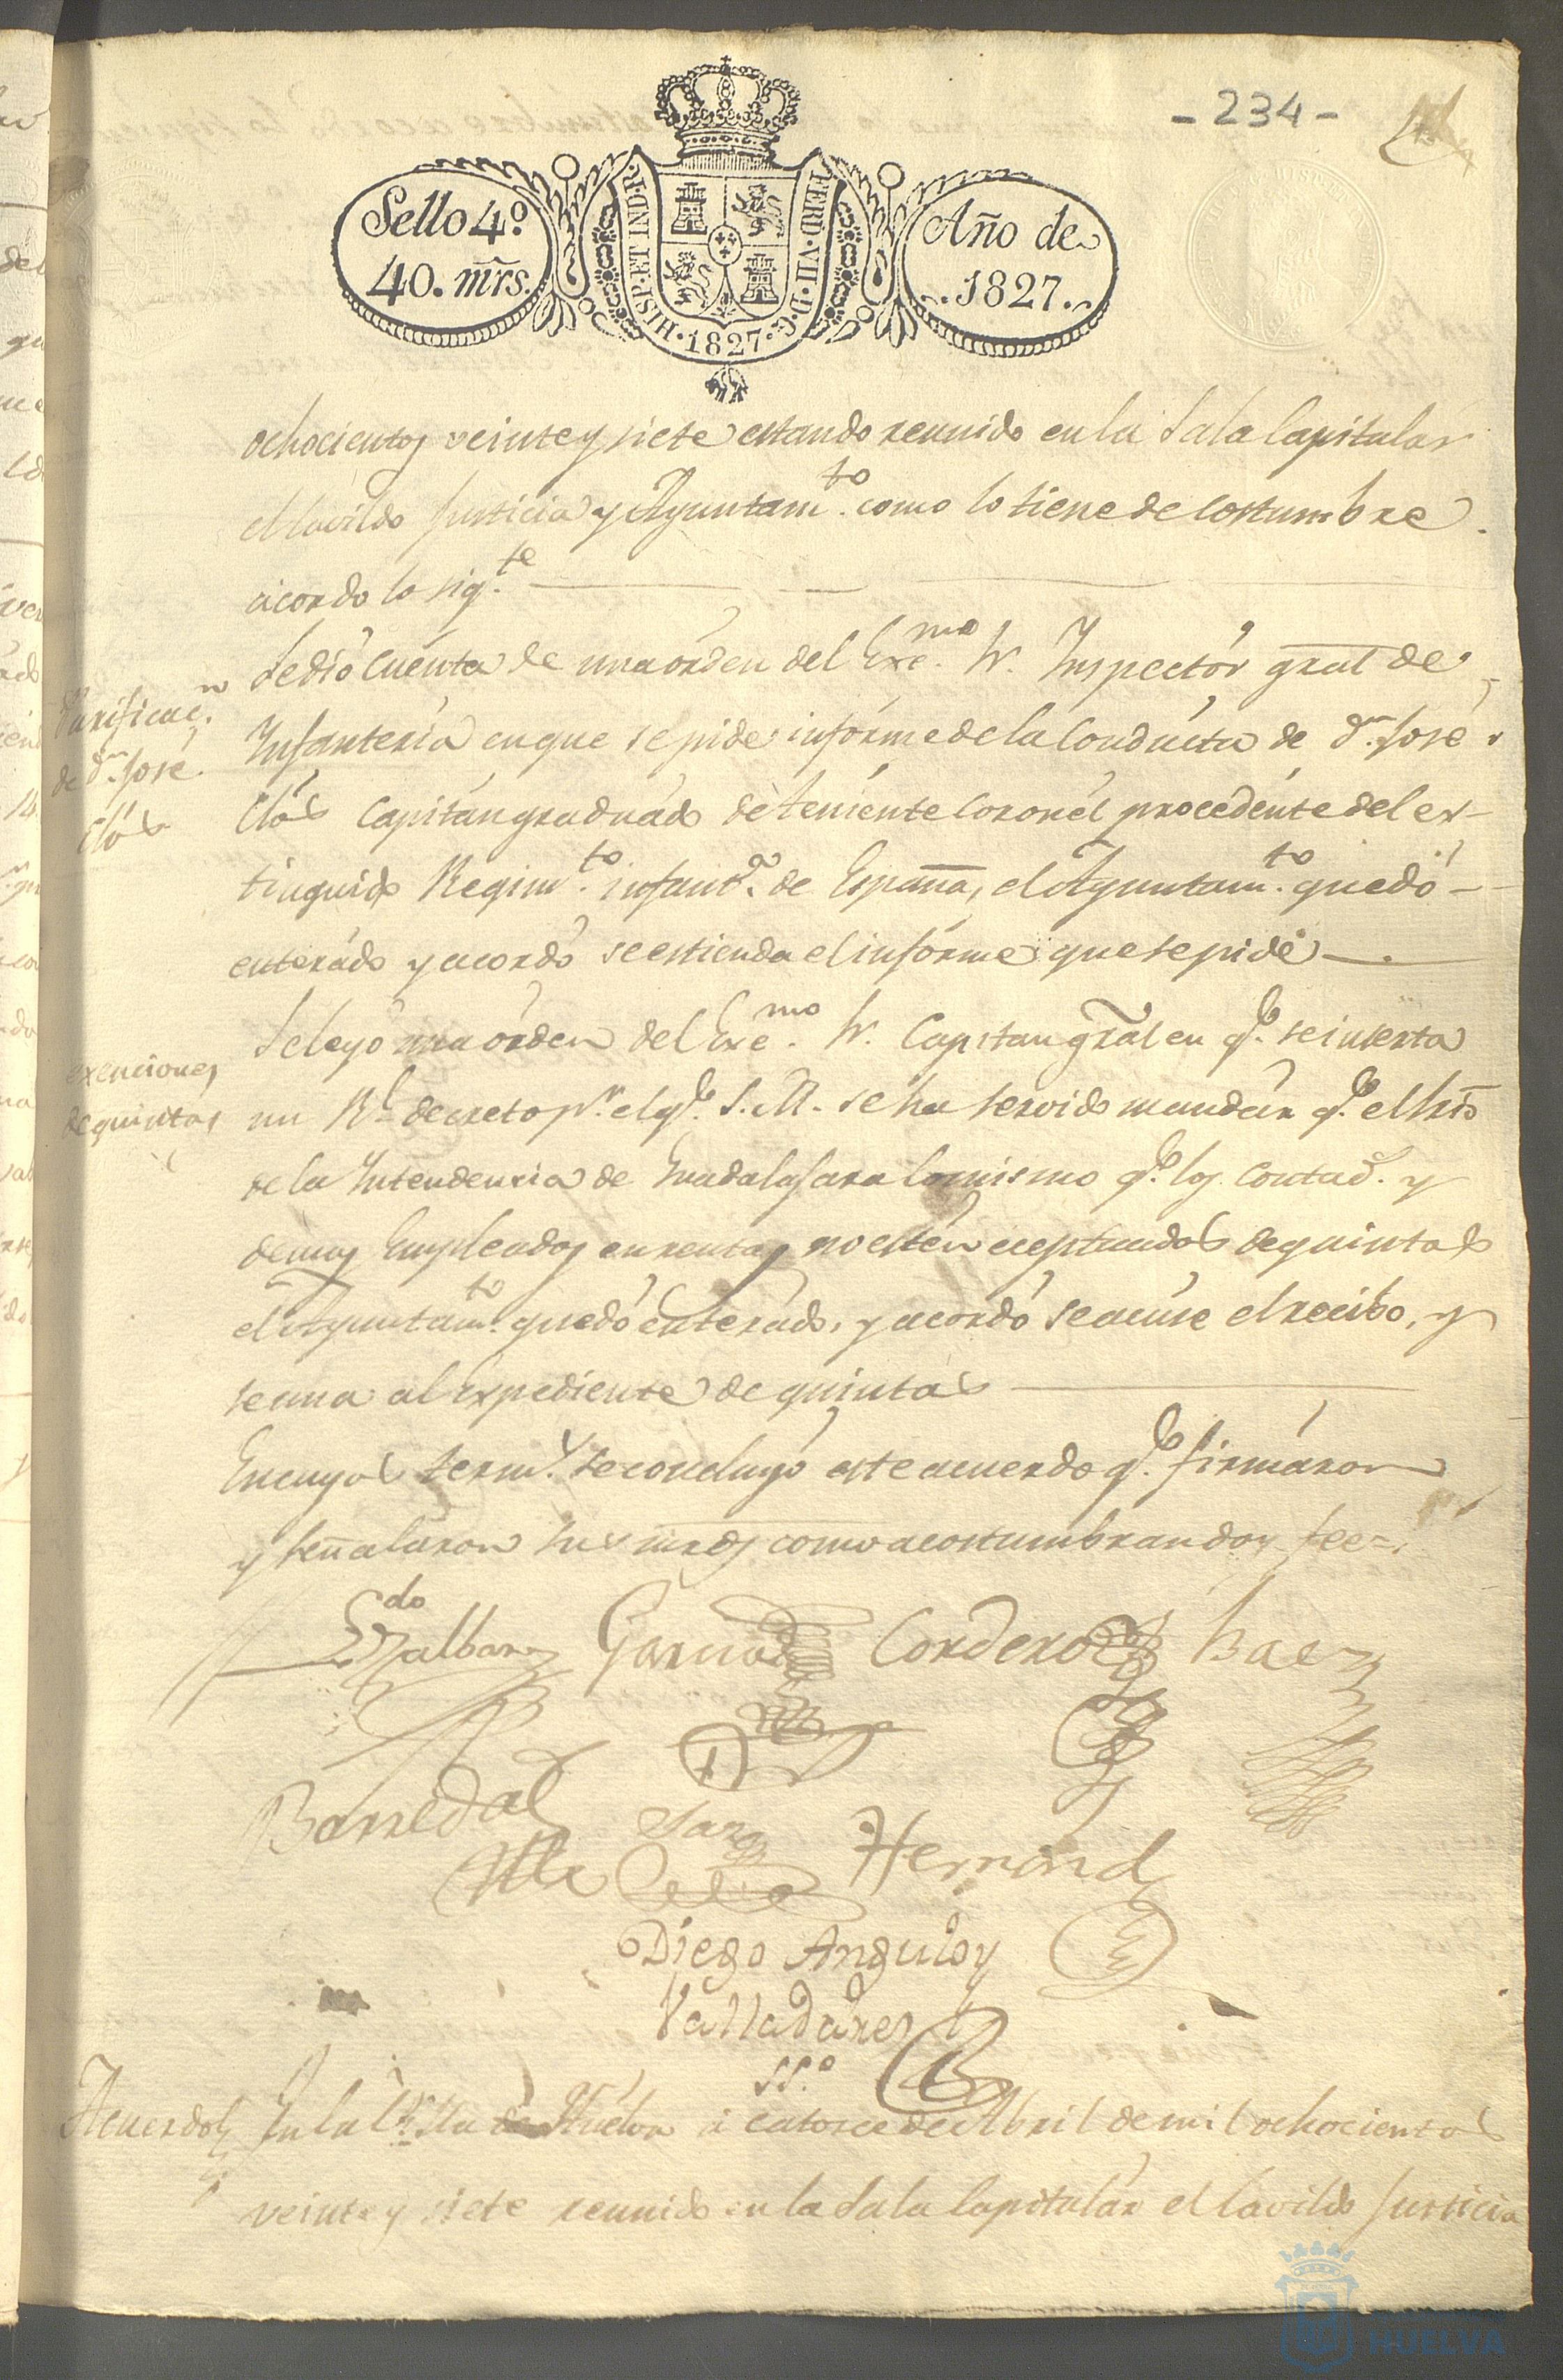 - 234 -
Sello 4º
40. mrs.
HISP. ET IND. R.
FERD. VII. D. G.
· 1827 ·
Año de
. 1827 .
ochocientos veinte y siete estando reunido en la Sala Capitular
el Cavildo Justicia y Ayuntam.to como lo tiene de costumbre
acordo lo sig.te
Purificac.n
de d.n José
Clós
Se dió cuenta de una orden del Exc.mo Sr. Inspector gral de
Infanteria en que se pide informe de la conducta de d.n José
Clós Capitan graduado de teniente Coronel procedente del ex-
tinguido Regim.to infant.a de España, el Ayuntam.to quedó
enterado y acordó se estienda el informe que se pide
exenciones
de quintas
Se leyó una orden del Exc.mo Sr. Capitan gral en q.e se inserta
un R.l decreto p.r el q.e S. M. se ha servido mandar q.e el Srio
de la Intendencia de Guadalajara lo mismo q.e los Contad.s y
demas Empleados en rentas no esten eceptuados de quintas
el Ayuntam.to quedó enterado, y acordó se acuse el recibo, y
se una al Expediente de quintas
En cuyos term.s se concluyó este acuerdo q.e firmáron
y señaláron sus mrds como acostumbran doy fee =
Ldo
Garcia Cordero Baez
Barredal
Hernand
Diego Angulo y
Valladares
SS.º
Acuerdo En la Villa de Huelva á catorce de Abril de mil ochocientos
veinte y siete reunido en la Sala Capitular el Cavildo Justicia
HUELVA